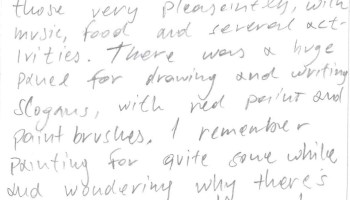 those very pleasaintly, with
music, food and several act-
ivities. There was a huge
panel for drawing and writing
slogans, with red paint and
paint brushes. I remember
painting for quite some while
and wondering why there's